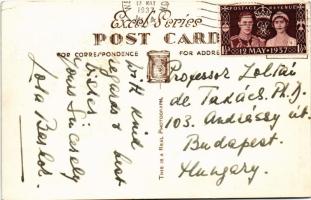 12 MAY
1937
POSTAGE REVENUE
12 MAY 1937
Excel Series
POST CARD
FOR CORRESPONDENCE
FOR ADDRESS
THIS IS A REAL PHOTOGRAPH.
With kind
regards & best
wishes
yours sincerely
Professor Zoltán
de Takács. Ph. D.
103. Andrássy út.
Budapest.
Hungary.